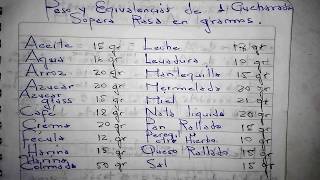 Peso y Equivalencias de 1 Cucharada
Sopera Rasa en gramos.
Aceite = 15 gr = Leche = 18 gr
Agua = 15 gr = Levadura = gr
Arroz = 20 gr = Mantequilla = 15 gr
Azucar = 20 gr = Mermelada = 20 gr
Azucar glass = 15 gr = Miel = gr
Café = 18 gr = Nata liquida = 20 gr
Crema = 20 gr = Pan Rallado = 15 gr
Fecula = 12 gr = Perejil otra Hierba = 10 gr
Harina = 15 gr = Queso Rallado = 15 gr
Harina Colmada = 30 gr = Sal = 15 gr